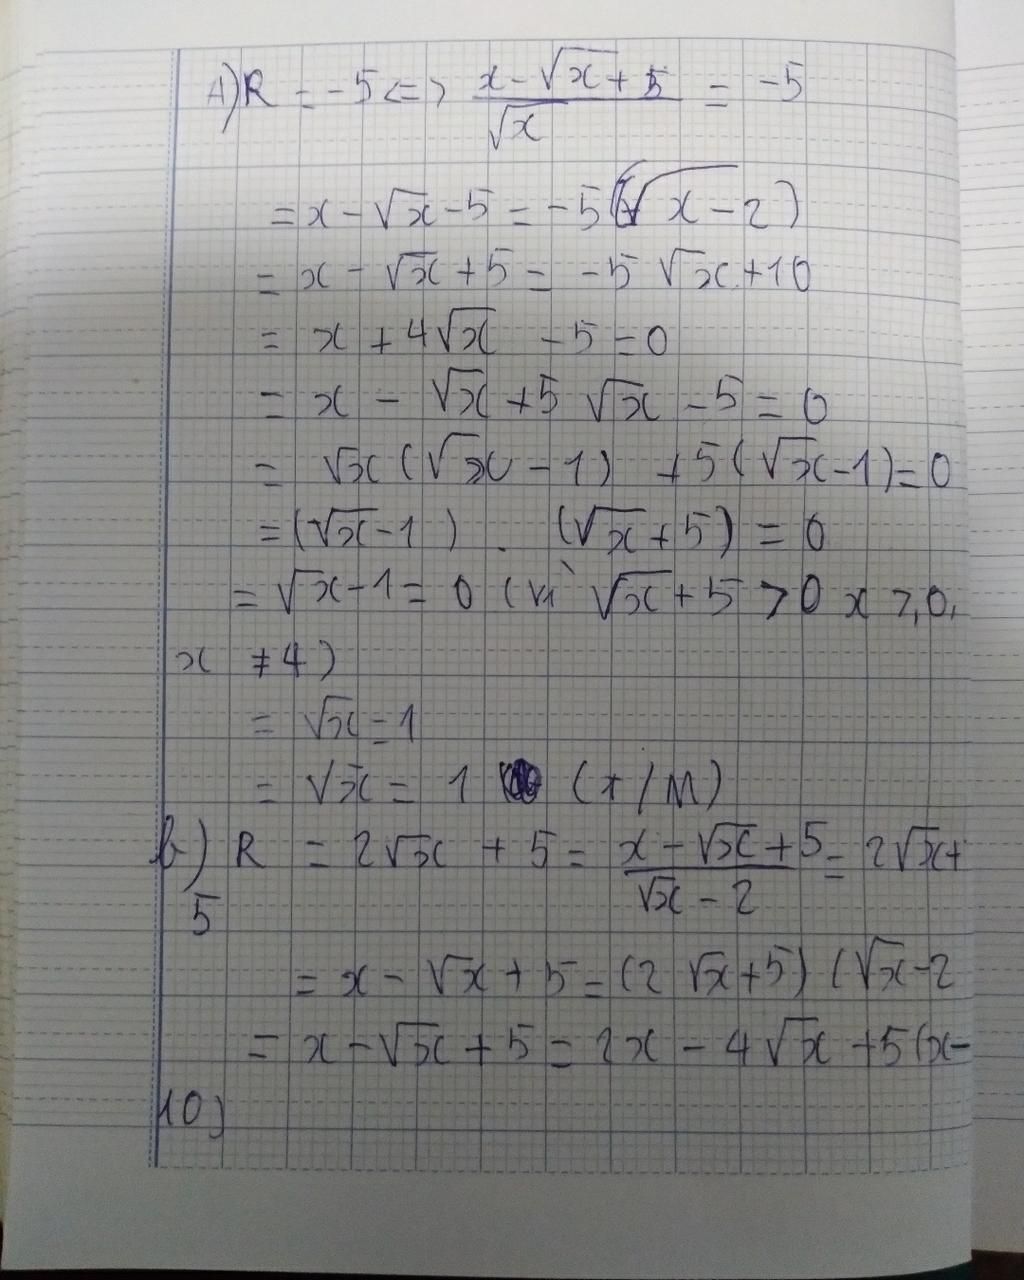 A) R = -5 <=> x - √x + 5 / √x = -5
= x - √x - 5 = -5 (√x - 2)
= x - √x + 5 = -5 √x + 10
= x + 4√x - 5 = 0
= x - √x + 5 √x - 5 = 0
= √x (√x - 1) + 5 (√x - 1) = 0
= (√x - 1) . (√x + 5) = 0
= √x - 1 = 0 (vì √x + 5 > 0 x ⩾ 0,
x ≠ 4)
= √x = 1
= √x = 1 (T/M)
b) R = 2√x + 5 = x - √x + 5 / √x - 2 = 2√x +
5
= x - √x + 5 = (2 √x + 5) (√x - 2
= x - √x + 5 = 2x - 4√x + 5(x -
10)